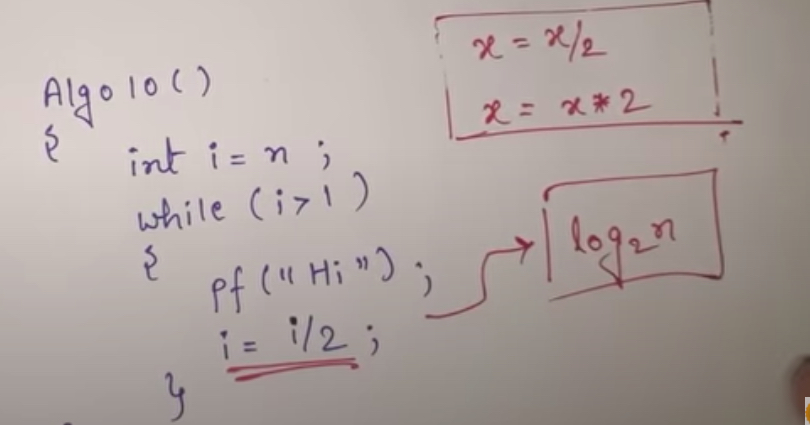 Algo10()
{
int i = n ;
while (i>1)
{
pf ("Hi") ;
i = i/2 ;
}
x = x/2
x = x*2
log₂n